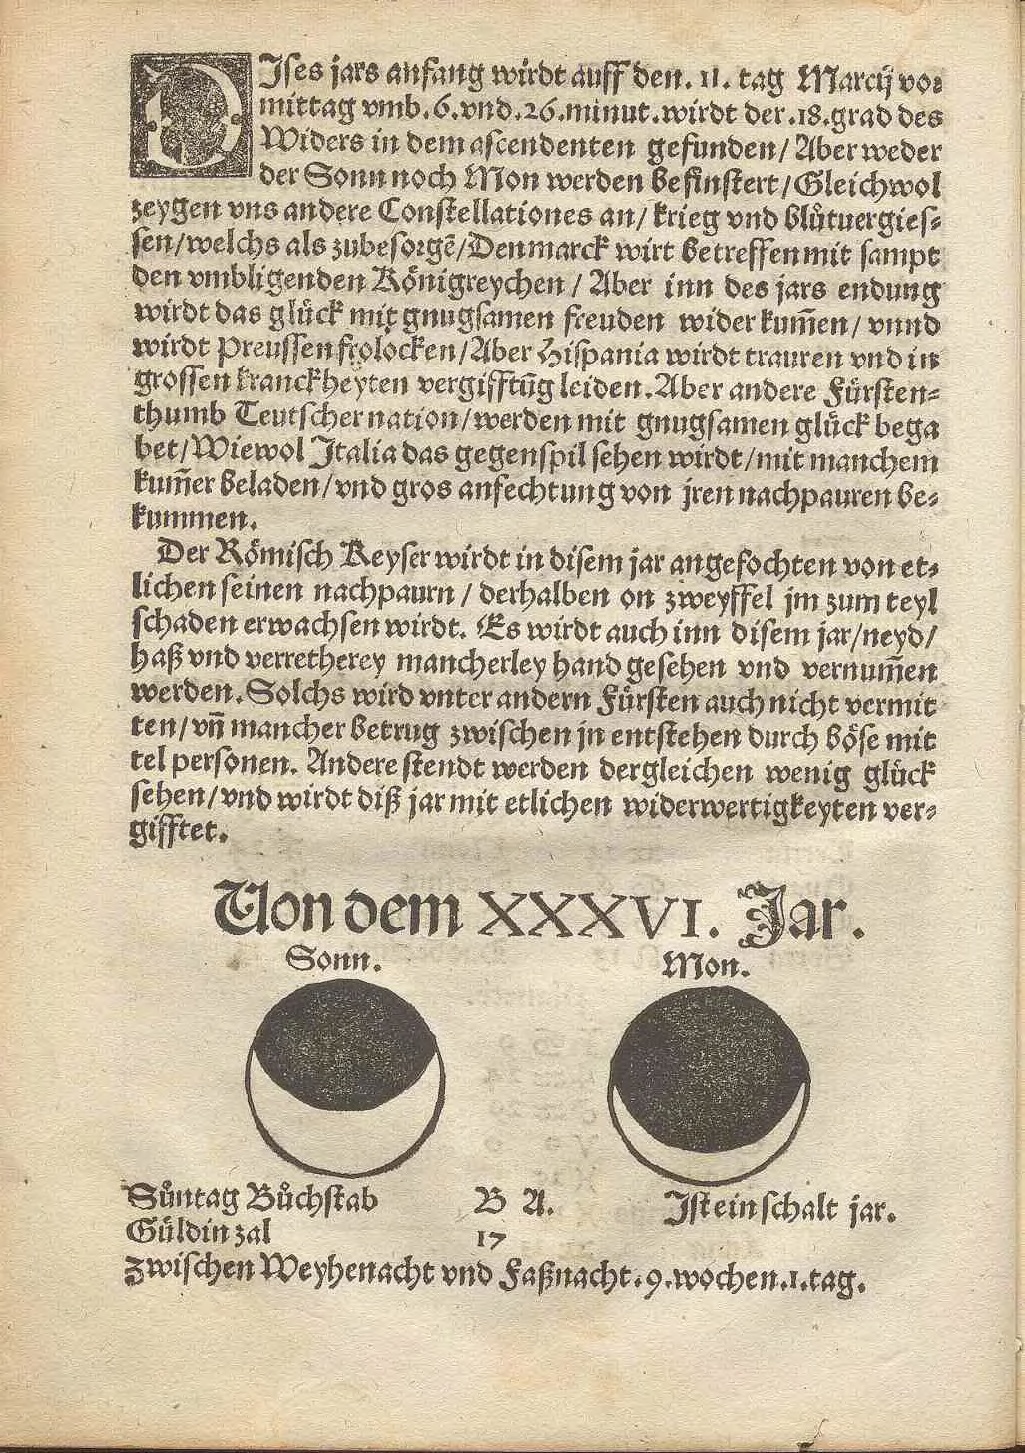 DIses jars anfang wirdt auff den. 11. tag Marcij vor
mittag vmb. 6. vnd. 26. minut. wirdt der. 18. grad des
Widers in dem ascendenten gefunden / Aber weder
der Sonn noch Mon werden befinstert / Gleichwol
zeygen vns andere Constellationes an / krieg vnd blůtuergies-
sen / welchs als zubesorgẽ / Denmarck wirt betreffen mit sampt
den vmbligenden Königreychen / Aber inn des jars endung
wirdt das glück mit gnugsamen freuden wider kum̃en / vnnd
wirdt Preussen frolocken / Aber Hispania wirdt trauren vnd in
grossen kranckheyten vergifftũg leiden. Aber andere Fürsten-
thumb Teutscher nation / werden mit gnugsamen glück bega
bet / Wiewol Italia das gegenspil sehen wirdt / mit manchem
kum̃er beladen / vnd gros anfechtung von jren nachpauren be-
kummen.
Der Römisch Keyser wirdt in disem jar angefochten von et-
lichen seinen nachpaurn / derhalben on zweyffel jm zum teyl
schaden erwachsen wirdt. Es wirdt auch inn disem jar / neyd /
haß vnd verretherey mancherley hand gesehen vnd vernum̃en
werden. Solchs wird vnter andern Fürsten auch nicht vermit
ten / vñ mancher betrug zwischen jn entstehen durch böse mit
tel personen. Andere stendt werden dergleichen wenig glück
sehen / vnd wirdt diß jar mit etlichen widerwertigkeyten ver-
gifftet.
Von dem XXXVI. Jar.
Sonn. Mon.
Sůntag Bůchstab B A. Ist ein schalt jar.
Güldin zal 17
Zwischen Weyhenacht vnd Faßnacht. 9. wochen. 1. tag.